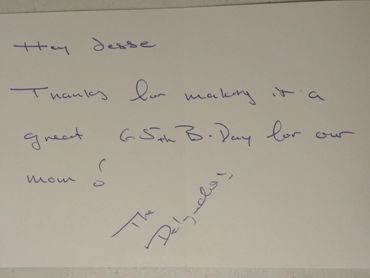 Hey Jesse
Thanks for making it a
great 65th B-Day for our
mom!
The